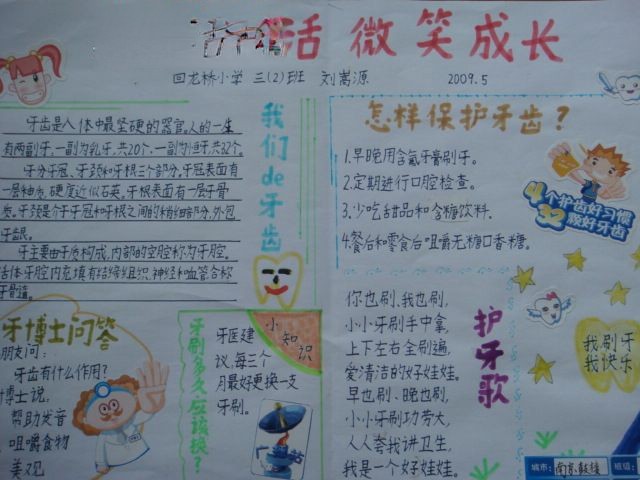 活 微笑成长
回龙桥小学 三(2)班 刘嵩源 2009.5
牙齿是人体中最坚硬的器官。人的一生
有两副牙,一副为乳牙,共20个,一副为恒牙,共32个。
牙分牙冠、牙颈和牙根三个部分。牙冠表面有
一层釉质,硬度近似石英。牙根表面有一层牙骨
质。牙颈是介于牙冠和牙根之间的稍细部分,外包
牙龈。
牙主要由牙质构成,内部的空腔称为牙腔。
活体牙腔内充填有结缔组织、神经和血管合称
牙骨髓。
我们de牙齿
怎样保护牙齿?
1.早晚用含氟牙膏刷牙。
2.定期进行口腔检查。
3.少吃甜品和含糖饮料。
4.餐后和零食后咀嚼无糖口香糖。
4个护齿好习惯
32颗好牙齿
牙博士问答
朋友问:
牙齿有什么作用?
博士说,
帮助发音
咀嚼食物
美观
牙刷多久应该换?
小知识
牙医建
议,每三个
月最好更换一支
牙刷。
护牙歌
你也刷、我也刷,
小小牙刷手中拿,
上下左右全刷遍,
爱清洁的好娃娃。
早也刷、晚也刷,
小小牙刷功劳大,
人人夸我讲卫生,
我是一个好娃娃。
我刷牙
我快乐
城市:南京
班级: